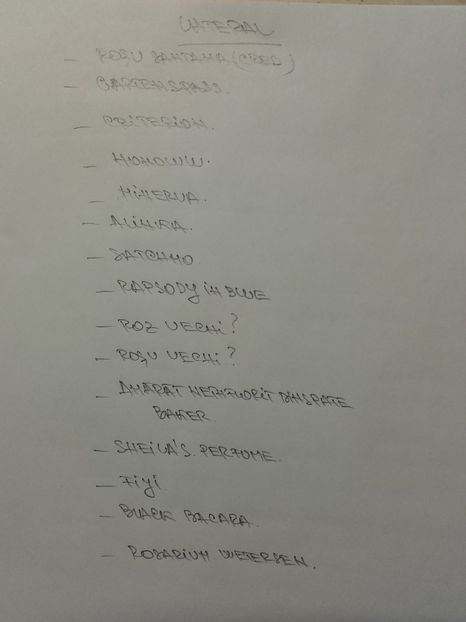 LATERAL
- ROȘU SANTANA (CRED)
- GARTENSPASS.
- CRITERION.
- HONOLULU.
- MINERVA.
- ALINKA.
- SATCHMO
- RAPSODY IN BLUE
- ROZ VECHI?
- ROȘU VECHI?
- AMARAT NEÎNFLORIT DINSPATE
BAKER.
- SHEILA'S PERFUME.
- FiYi
- BLACK BACARA.
- ROSARIUM UETERSEN.